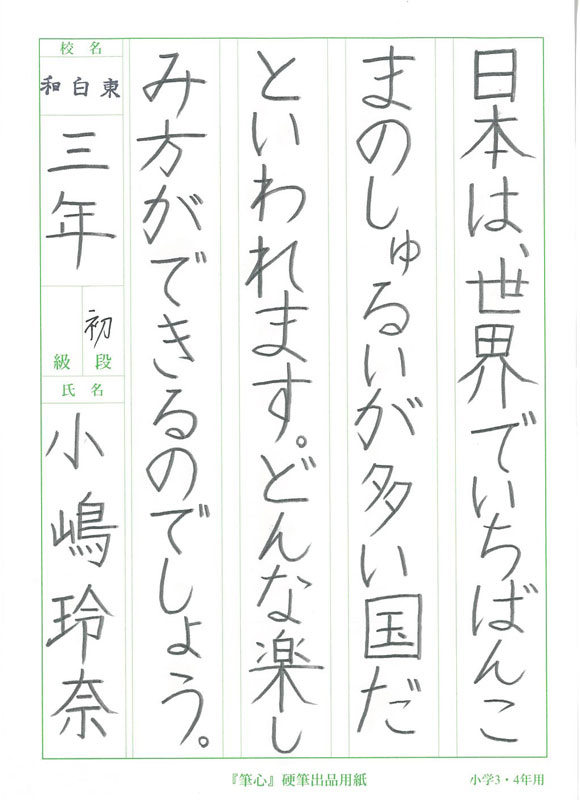 日本は、世界でいちばんこ
まのしゅるいが多い国だ
といわれます。どんな楽し
み方ができるのでしょう。
校名
和白東
三年
初
級 段
氏名
小嶋玲奈
『筆心』硬筆出品用紙
小学3・4年用